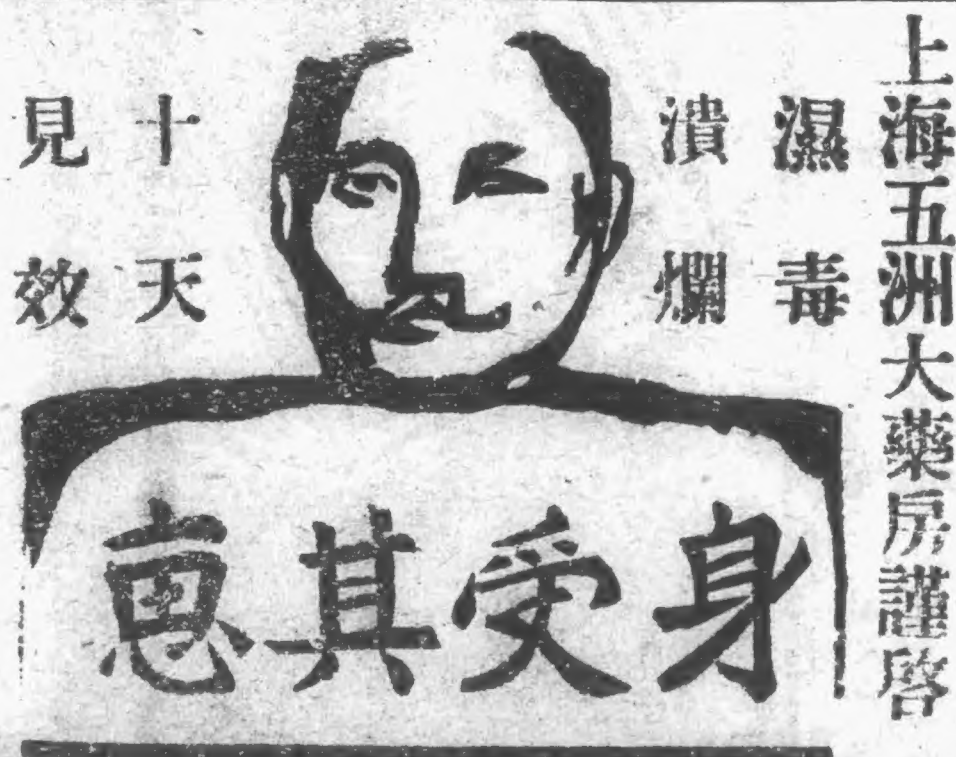 上海五洲大藥房謹啓
濕毒
潰爛
十天
見效
身受其惠